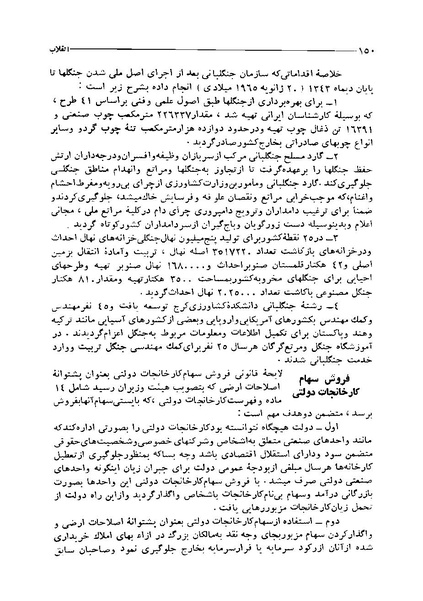 ۱۵۰ انقلاب
خلاصهٔ اقداماتی‌که سازمان جنگلبانی بعد از اجرای اصل ملی شدن جنگلها تا
پایان دیماه ۱۳۴۳ (۲۰ ژانویه ۱۹۶۵ میلادی) انجام داده بشرح زیر است:
۱ـ برای بهره‌برداری ازجنگلها طبق اصول علمی وفنی براساس ۴۱ طرح،
که بوسیلهٔ کارشناسان ایرانی تهیه شد، مقدار۲۲۶۳۳۷ مترمکعب چوب صنعتی و
۱۶۳۹۱ تن ذغال چوب تهیه ودرحدود دوازده هزارمترمکعب تنهٔ چوب گردو وسایر
انواع چوبهای صادراتی بخارج کشورصادرگردید.
۲ـ گارد مسلح جنگلبانی مرکب ازسربازان وظیفه وافسران ودرجه‌داران ارتش
حفظ جنگلها را برعهده‌گرفت تا ازتجاوز به‌جنگلها ومراتع وانهدام مناطق جنگلی
جلوگیری‌کند. گارد جنگلبانی ومامورین‌وزارت‌کشاورزی ازچرای بی‌رویه‌ومفرط‌احشام
واغنام‌،که موجب‌خرابی مراتع ونقصان علوفه و فرسایش خاک‌میشد، جلوگیری‌کردندو
ضمناً برای ترغیب دامداران وترویج دامپروری چرای دام درکلیهٔ مراتع ملی، مجانی
اعلام وبدینوسیله دست زورگویان وباج‌گیران ازسردامداران کشورکوتاه گردید.
۳ـ در۲۵ نقطهٔ کشوربرای تولید پنج‌میلیون نهال‌جنگلی‌خزانه‌های نهال احداث
ودرخزانه‌های بازکاشت تعداد ۳۵۱۷۲۲۰ اصله نهال، تربیت وآمادهٔ انتقال بزمین
اصلی و۴۲ هکتارقلمستان صنوبراحداث و۱۶۸۰۰۰۰ نهال صنوبر تهیه وطرحهای
احیایی برای جنگلهای مخروبه کشوربمساحت ۳۵۰۰ هکتارتهیه ومقدار ۸۱۰ هکتار
جنگل مصنوعی باکاشت تعداد ۲۰۲۵۰۰۰ نهال احداث‌گردید.
۴ـ رشتهٔ جنگلبانی دانشکدهٔ‌کشاورزی‌کرج توسعه یافت و۴۵ نفرمهندس
وکمک مهندس بکشورهای آمریکایی‌واروپایی وبعضی ازکشورهای آسیایی مانند ترکیه
وهند وپاکستان برای تکمیل اطلاعات ومعلومات مربوط به‌جنگل اعزام‌گردیدند. در
آموزشگاه جنگل ومرتع‌گرگان هرسال ۲۵ نفربرای‌کمک مهندسی جنگل تربیت ووارد
خدمت جنگلبانی شدند.
فروش سهام
کارخانجات دولتی
لایحهٔ قانونی فروش سهام‌کارخانجات دولتی بعنوان پشتوانهٔ
اصلاحات ارضی که بتصویب هیئت وزیران رسید شامل ۱۴
ماده وفهرست‌کارخانجات دولتی، که بایستی‌سهام‌آنهابفروش
برسد، متضمن دوهدف مهم است:
اول ـ دولت هیچگاه نتوانسته بودکارخانجات دولتی را بصورتی اداره‌کندکه
مانند واحدهای صنعتی متعلق به‌اشخاص وشرکتهای خصوصی‌وشخصیت‌های‌حقوقی
متضمن سود ودارای استقلال اقتصادی باشد وچه بساکه بمنظورجلوگیری ازتعطیل
کارخانه‌ها هرسال مبلغی ازبودجهٔ عمومی دولت برای جبران زیان اینگونه واحدهای
صنعتی دولتی صرف میشد. با فروش سهام‌کارخانجات دولتی این واحدها بصورت
بازرگانی درآمد وسهام بی‌نام‌کارخانجات باشخاص واگذارگردید وازاین راه دولت از
تحمل زیان‌کارخانجات مزبوررهایی یافت.
دوم ـ استفاده ازسهام‌کارخانجات دولتی بعنوان پشتوانهٔ اصلاحات ارضی و
واگذارکردن سهام مزبوربجای وجه نقد به‌مالکان بزرگ در ازاء بهای املاک خریداری
شده ازآنان ازرکود سرمایه یا فرارسرمایه بخارج جلوگیری نمود وصاحبان سابق